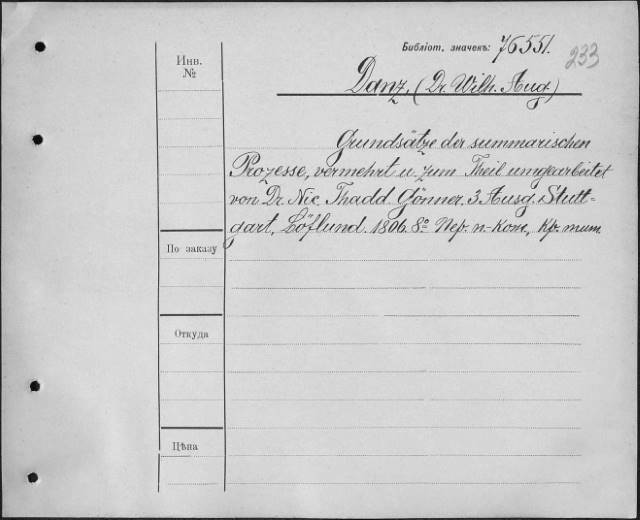 Библіот. значекъ: 76551.
233
Инв.
№
Danz, (Dr. Wilh. Aug)
Grundsätze der summarischen
Prozesse, vermehrt u. zum Theil umgearbeitet
von Dr. Nic. Thadd. Gönner. 3. Ausg. Stutt-
gart, Löflund. 1806. 8º. Пер. п-кож,
По заказу
Откуда
Цѣна